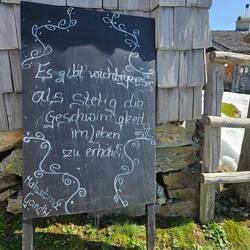 Es gibt wichtigeres
als stetig die
Geschwindigkeit
im Leben
zu erhöhen
Mahatma
Gandhi